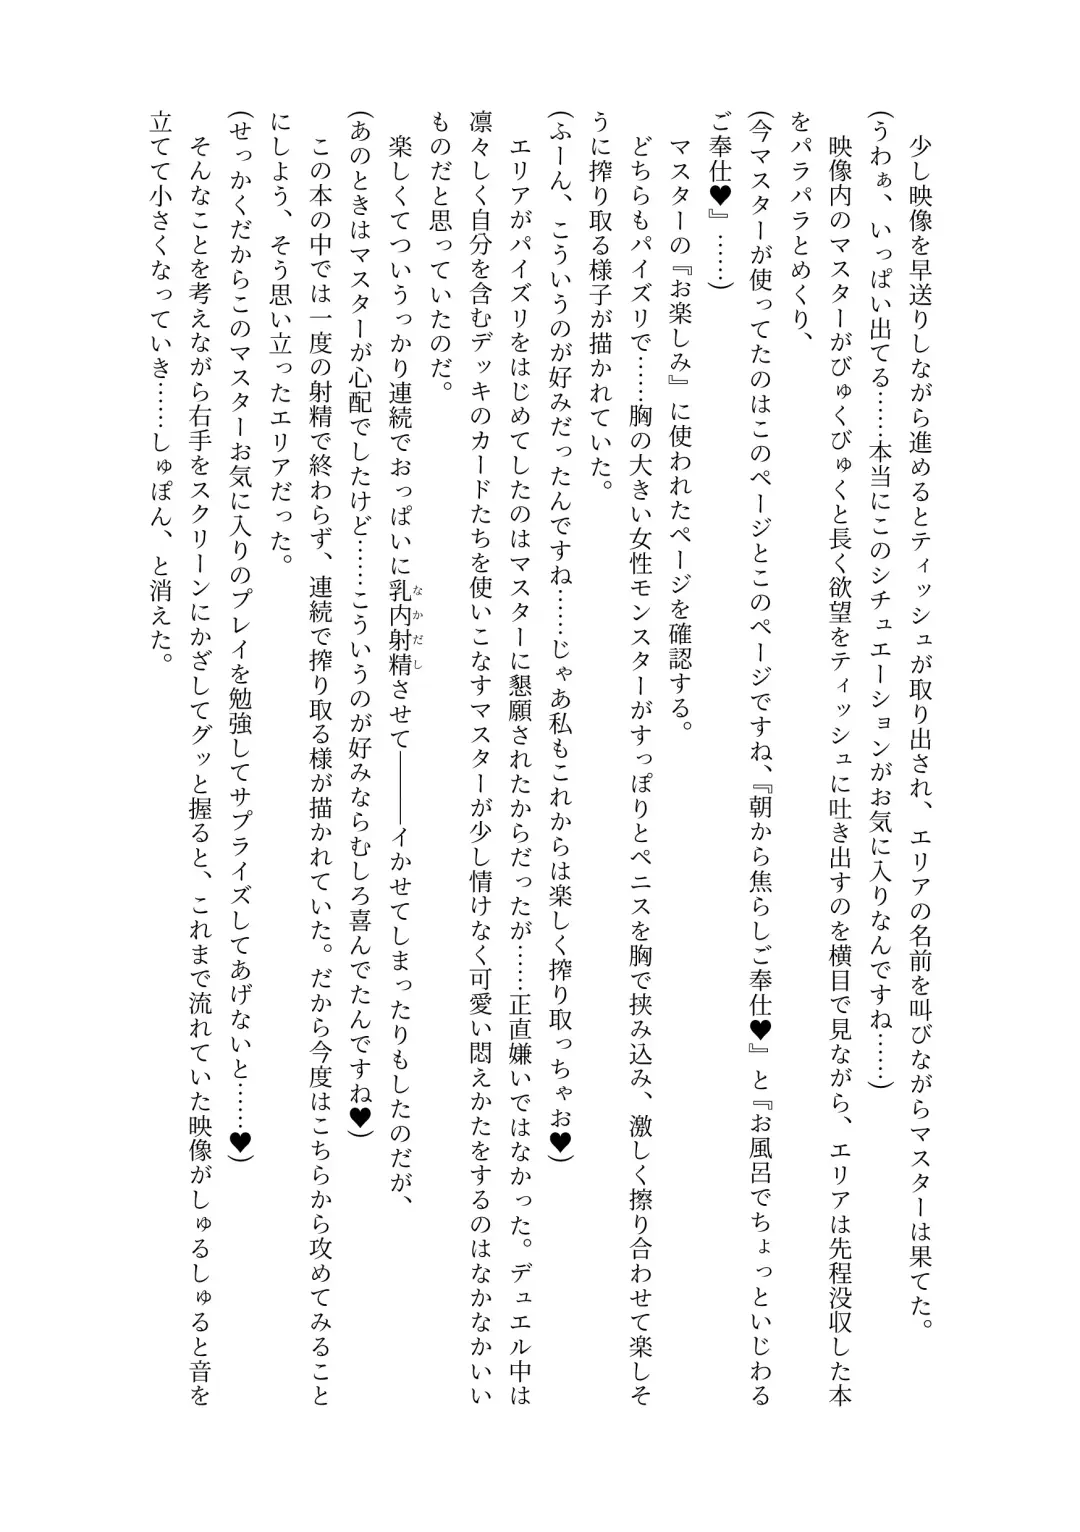 少し映像を早送りしながら進めるとティッシュが取り出され、エリアの名前を叫びながらマスターは果てた。
(うわぁ、いっぱい出てる……本当にこのシチュエーションがお気に入りなんですね……)
映像内のマスターがびゅくびゅくと長く欲望をティッシュに吐き出すのを横目で見ながら、エリアは先程没収した本
をパラパラとめくり、
(今マスターが使ってたのはこのページとこのページですね、『朝から焦らしご奉仕♥』と『お風呂でちょっといじわる
ご奉仕♥』……)
マスターの『お楽しみ』に使われたページを確認する。
どちらもパイズリで……胸の大きい女性モンスターがすっぽりとペニスを胸で挟み込み、激しく擦り合わせて楽しそ
うに搾り取る様子が描かれていた。
(ふーん、こういうのが好みだったんですね……じゃあ私もこれからは楽しく搾り取っちゃお♥)
エリアがパイズリをはじめてしたのはマスターに懇願されたからだったが……正直嫌いではなかった。デュエル中は
凛々しく自分を含むデッキのカードたちを使いこなすマスターが少し情けなく可愛い悶えかたをするのはなかなかいい
ものだと思っていたのだ。
楽しくてついうっかり連続でおっぱいに乳内射精なかだしさせて――イかせてしまったりもしたのだが、
(あのときはマスターが心配でしたけど……こういうのが好みならむしろ喜んでたんですね♥)
この本の中では一度の射精で終わらず、連続で搾り取る様が描かれていた。だから今度はこちらから攻めてみること
にしよう、そう思い立ったエリアだった。
(せっかくだからこのマスターお気に入りのプレイを勉強してサプライズしてあげないと……♥)
そんなことを考えながら右手をスクリーンにかざしてグッと握ると、これまで流れていた映像がしゅるしゅると音を
立てて小さくなっていき……しゅぽん、と消えた。